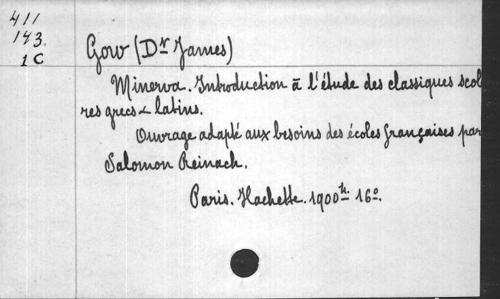 411
143.
1C
Gow (Dr James)
Minerva. Introduction à l'étude des classiques scol
res grecs & latins.
Ouvrage adapté aux besoins des écoles françaises par
Salomon Reinach.
Paris. Hachette. 1900. 16°.